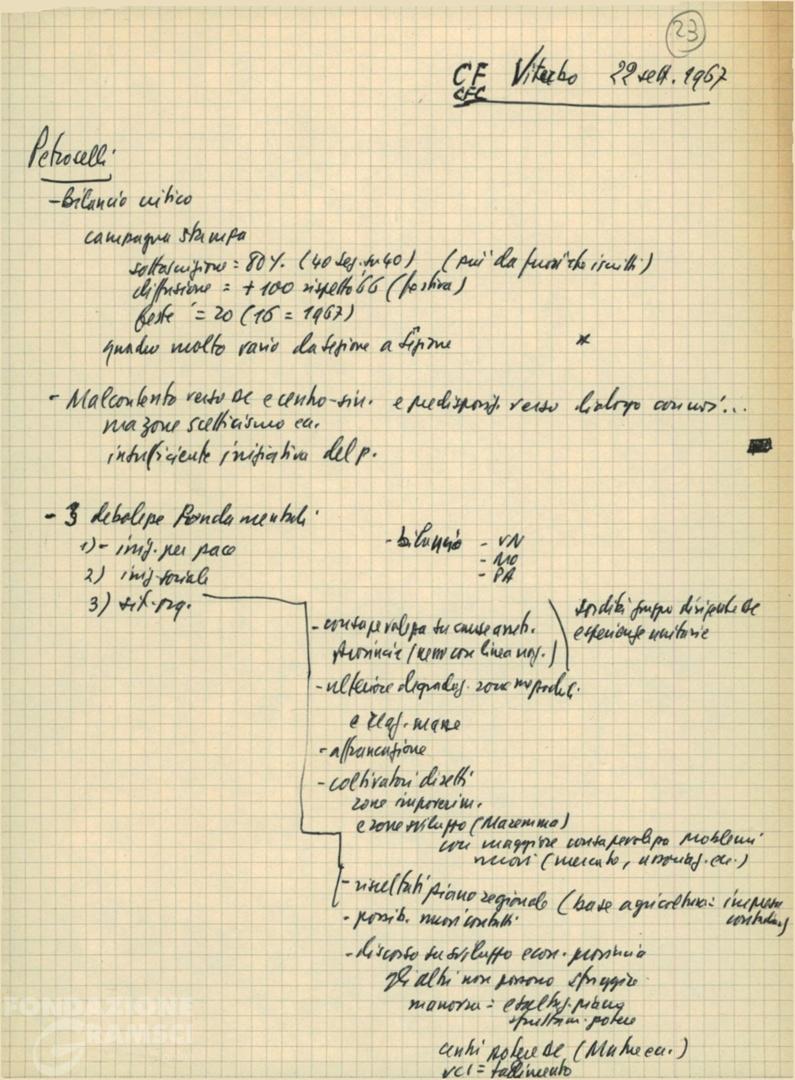 23
CF Viterbo 22 sett. 1967
CFC
Petrocelli
- Bilancio critico
campagna stampa
sottoscrizione = 80% (40 sez. su 40) (più da fuori che iscritti)
diffusione = + 100 rispetto 66 (festiva)
feste = 20 (16 = 1967)
quadro molto vario da sezione a sezione *
- Malcontento verso DC e centro-sin. e predispos. verso dialogo con noi...
ma zone scetticismo ecc.
insufficiente iniziativa del p.
- 3 debolezze fondamentali
1) - iniz. per pace
2) iniz. sociali
3) sit. org.
- bilancio - VN
- MO
- PA
- consapevolezza su cause arretr.
provincia (nemo con linea naz.)
gruppo dirigente DC
esperienze unitarie
- ulteriore degradaz. zone
e
- affrancazione
- coltivatori diretti
zone impoverim.
e zone sviluppo (Maremma)
con maggiore consapevolezza problemi
nuovi (mercato, associaz. ecc.)
- risultati piano regionale (base agricoltura = impresa
contadina)
- possib. nuovi contatti
- discorso su sviluppo econ. provincia
gli altri non possono sfuggire
manovra = esaltaz. piano
potere
centri potere DC (Mutue ecc.)
= fallimento
FONDAZIONE
GRAMSCI